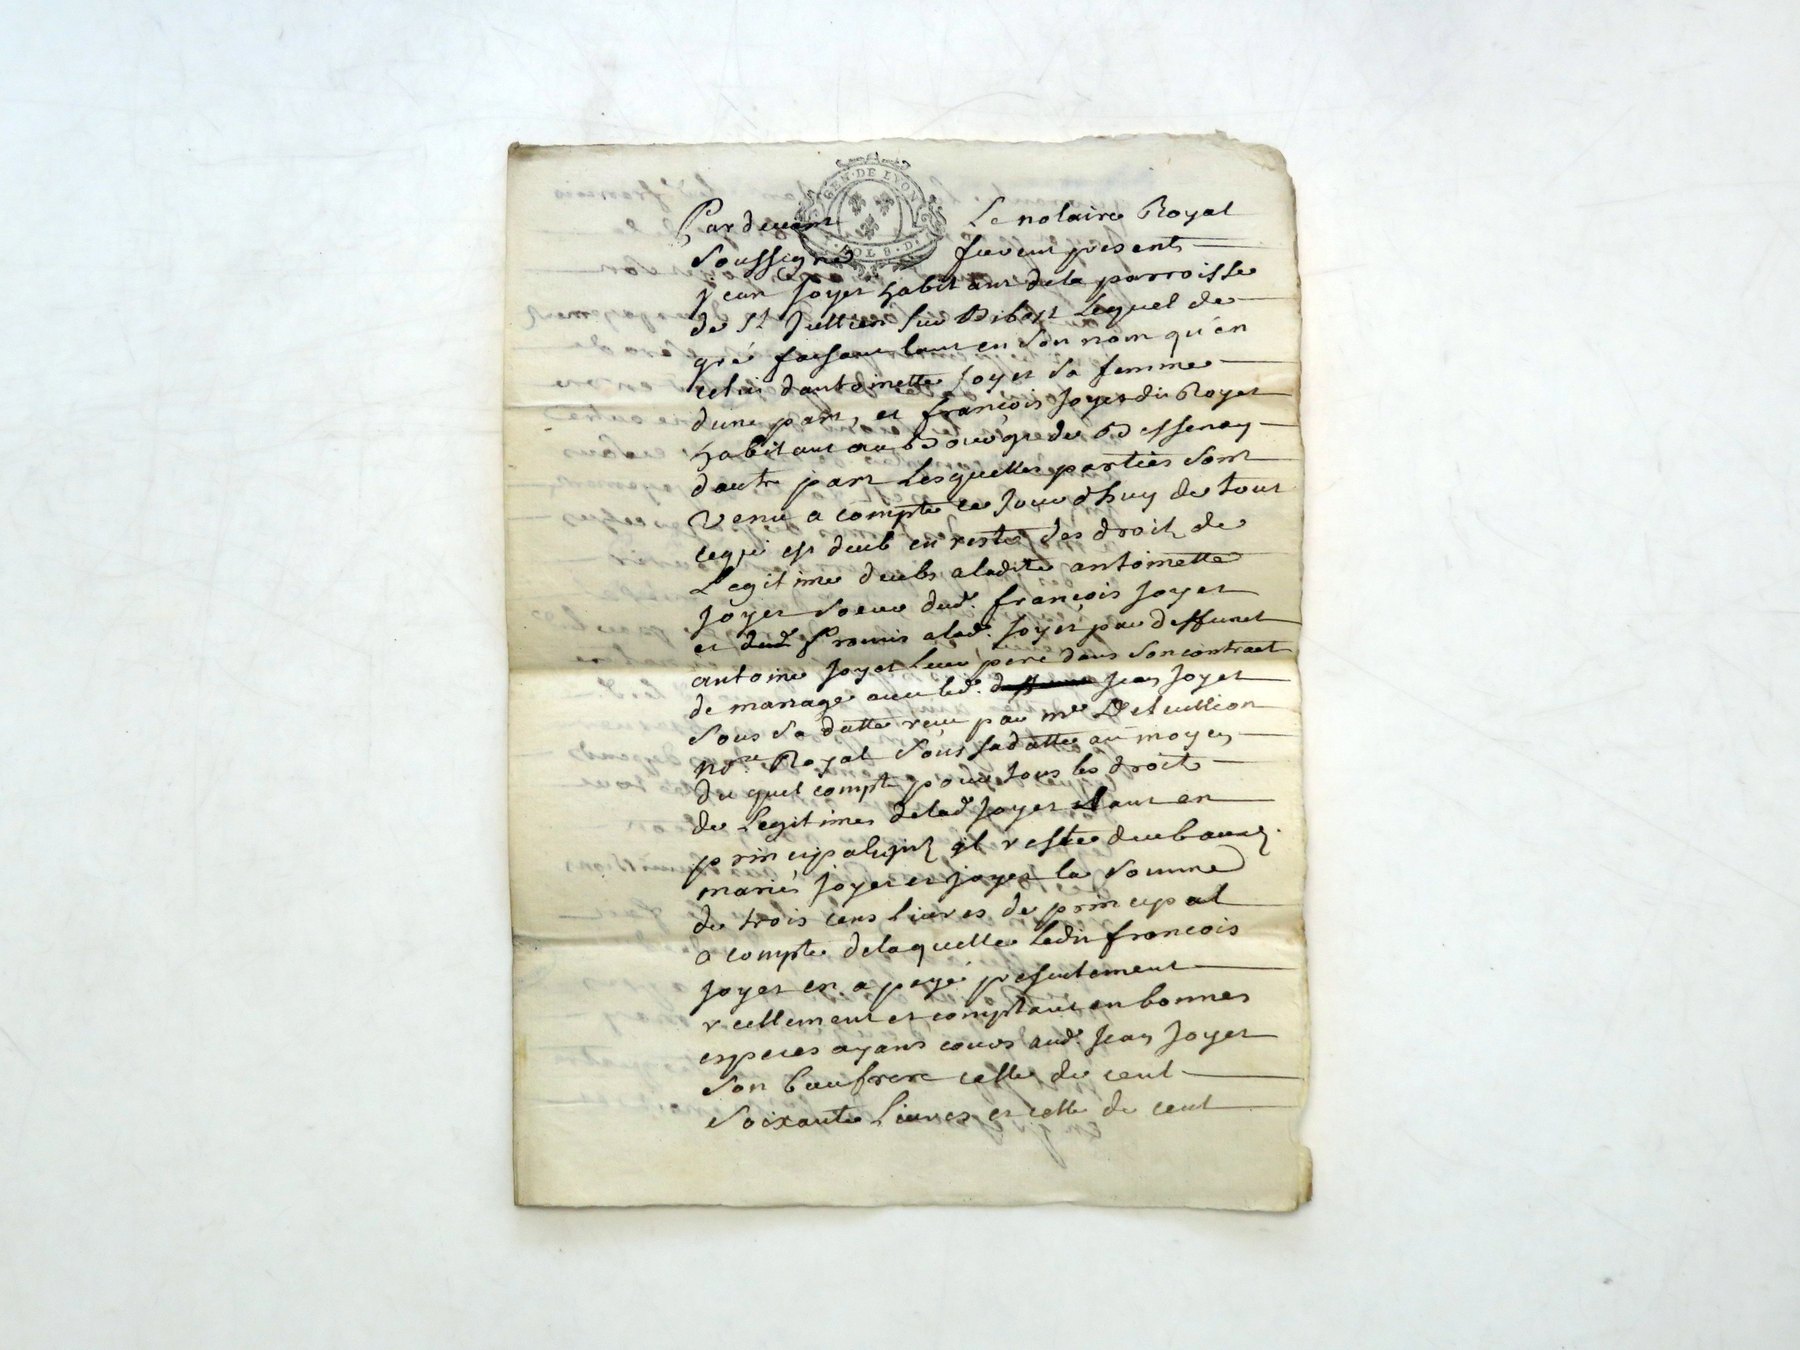 GEN · DE LYON
SOL 8 · D
Pardevant Le notaire Royal
Soussigné furent presents
jean Joyet habitant de la parroisse
de St Jullien sur Bibost Lequel de
gré faisant tant en son nom qu'en
celui dantoinette Joyet sa femme
dune part, et françois Joyet dit Royet
habitant au Bourg de Bessenay
dautre part Lesquelles parties sont
venu a compte ce Jourdhuy de tout
cequi est deub en reste des droit de
Legitime deubs aladite antoinette
Joyet soeur dud. françois Joyet
et promis alad. Joyet par deffunct
antoine Joyet Leur pere dans son contract
de mariage avec led. Jean Joyet
sous sa datte reçu par me
nore Royal sous sa datte au moyen
du quel compte pour tous les droits
de Legitimes delad Joyet tant en
principal quil reste deub auxd.
mariés Joyet et Joyet la somme
de trois cens Livres de principal
a compte delaquelle Ledit francois
Joyet en a payé presentement
reellement et comptant en bonnes
especes ayans cours aud. Jean Joyet
son beaufrere celle de cent
soixante Livres et celle de cent